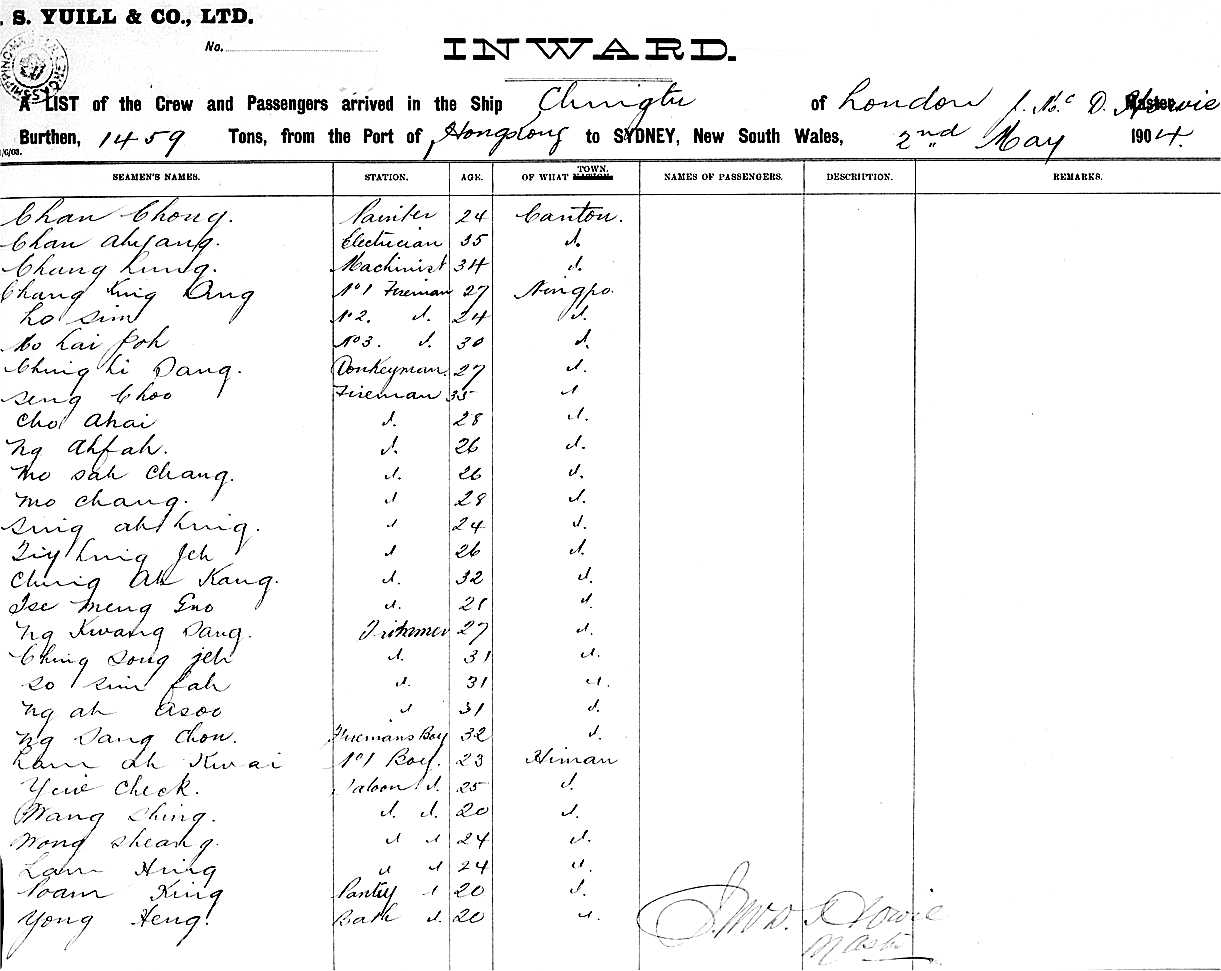 . S. YUILL & CO., LTD.
No.
INWARD.
A LIST of the Crew and Passengers arrived in the Ship Chingtu of London J. Mc D. Howie
Burthen, 1459 Tons, from the Port of Hongkong to SYDNEY, New South Wales, 2nd May 1904.
SEAMEN'S NAMES. STATION. AGE. OF WHAT TOWN. NATION. NAMES OF PASSENGERS. DESCRIPTION. REMARKS.
Chan Chong. Painter 24 Canton.
Chan ahyang. Electrician 35 d.
Chang Lung. Machinist 34 d.
Chang King No1 Fireman 27 Ningpo.
Lo Sim No2. d. 24 d.
hai foh No3. d. 30 d.
Ching Li Dang. Donkeyman. 27 d.
Seng Choo Fireman 35 d
Cho Ahai d. 28 d.
Ng Ahfah. d. 26 d.
Mo sah Chang. d. 26 d.
Mo Chang. d 28 d.
Sing ah Ling. d 24 d.
Ling Jeh d 26 d.
Ching Ah Kang. d. 32 d.
Tse Meng d. 21 d.
Ng Kwang Dang. Trimmer 27 d.
Ching Song jeh d. 31 d.
So Sim fah d. 31 d.
Ng ah Asoo d 31 d.
Ng Dang Chou. Firemans Boy 32 d.
Lam ah Kwai No1 Boy. 23 Hinan
Check. Saloon d. 25 d.
Wang Shing. d. d. 20 d.
Wong Sheang. d d 24 d.
Lam Hing d d 24 d.
King Pantry d 20 d.
Yong Heng. Bath d. 20 d.
J. McD. Howie
Master